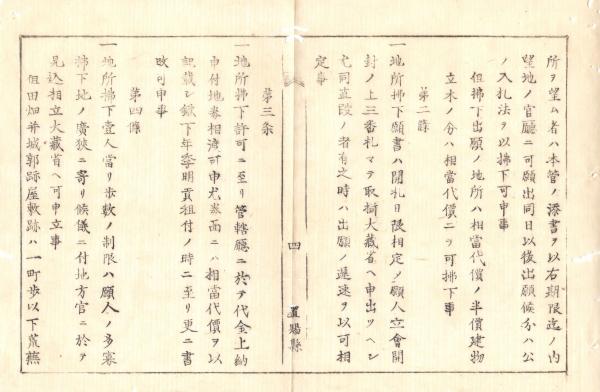 所ヲ望ム者ハ本管ノ添書ヲ以右期限迄ノ内
望地ノ官廳ニ可願出同日以後出願候分ハ公
ノ入札法ヲ以拂下可申事
但拂下出願ノ地所ハ相當代價ノ半價建物
立木ノ分ハ相當代價ニヲ可拂下事
第二條
一地所拂下願書ハ開札日限相定メ願人立會開
封ノ上三番札マテ取揃大藏省ヘ申出ツヘシ
尤同直段ノ者有之時ハ出願ノ遲速ヲ以可相
定事
四
置賜縣
第三条
一地所拂下許可ニ至リ管轄廳ニ於テ代金上納
申付地券相渡可申尤券面ニハ相當代價ヲ以
記載シ鍬下年季明貢租付ノ時ニ至リ更ニ書
改可申事
第四條
一地所拂下壹人當リ歩數ノ制限ハ願人ノ多寡
拂下地ノ廣狹ニ寄リ候儀ニ付地方官ニ於テ
見込相立大藏省ヘ可申立事
但田畑并城郭跡屋敷跡ハ一町歩以下荒蕪